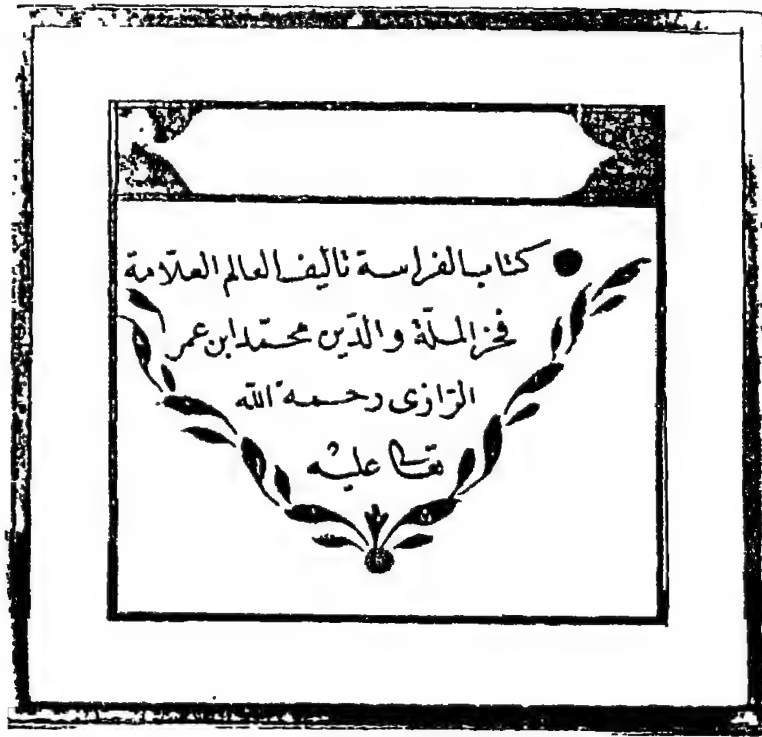 كتاب الفراسة تاليف العالم العلّامة
فخر الملّة والدّين محمّد ابن عمر
الرّازى رحمه الله
تعالى عليه